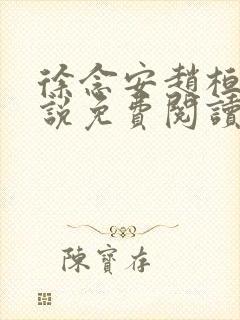 徐念安趙桓
說免費閱讀
陳寶存